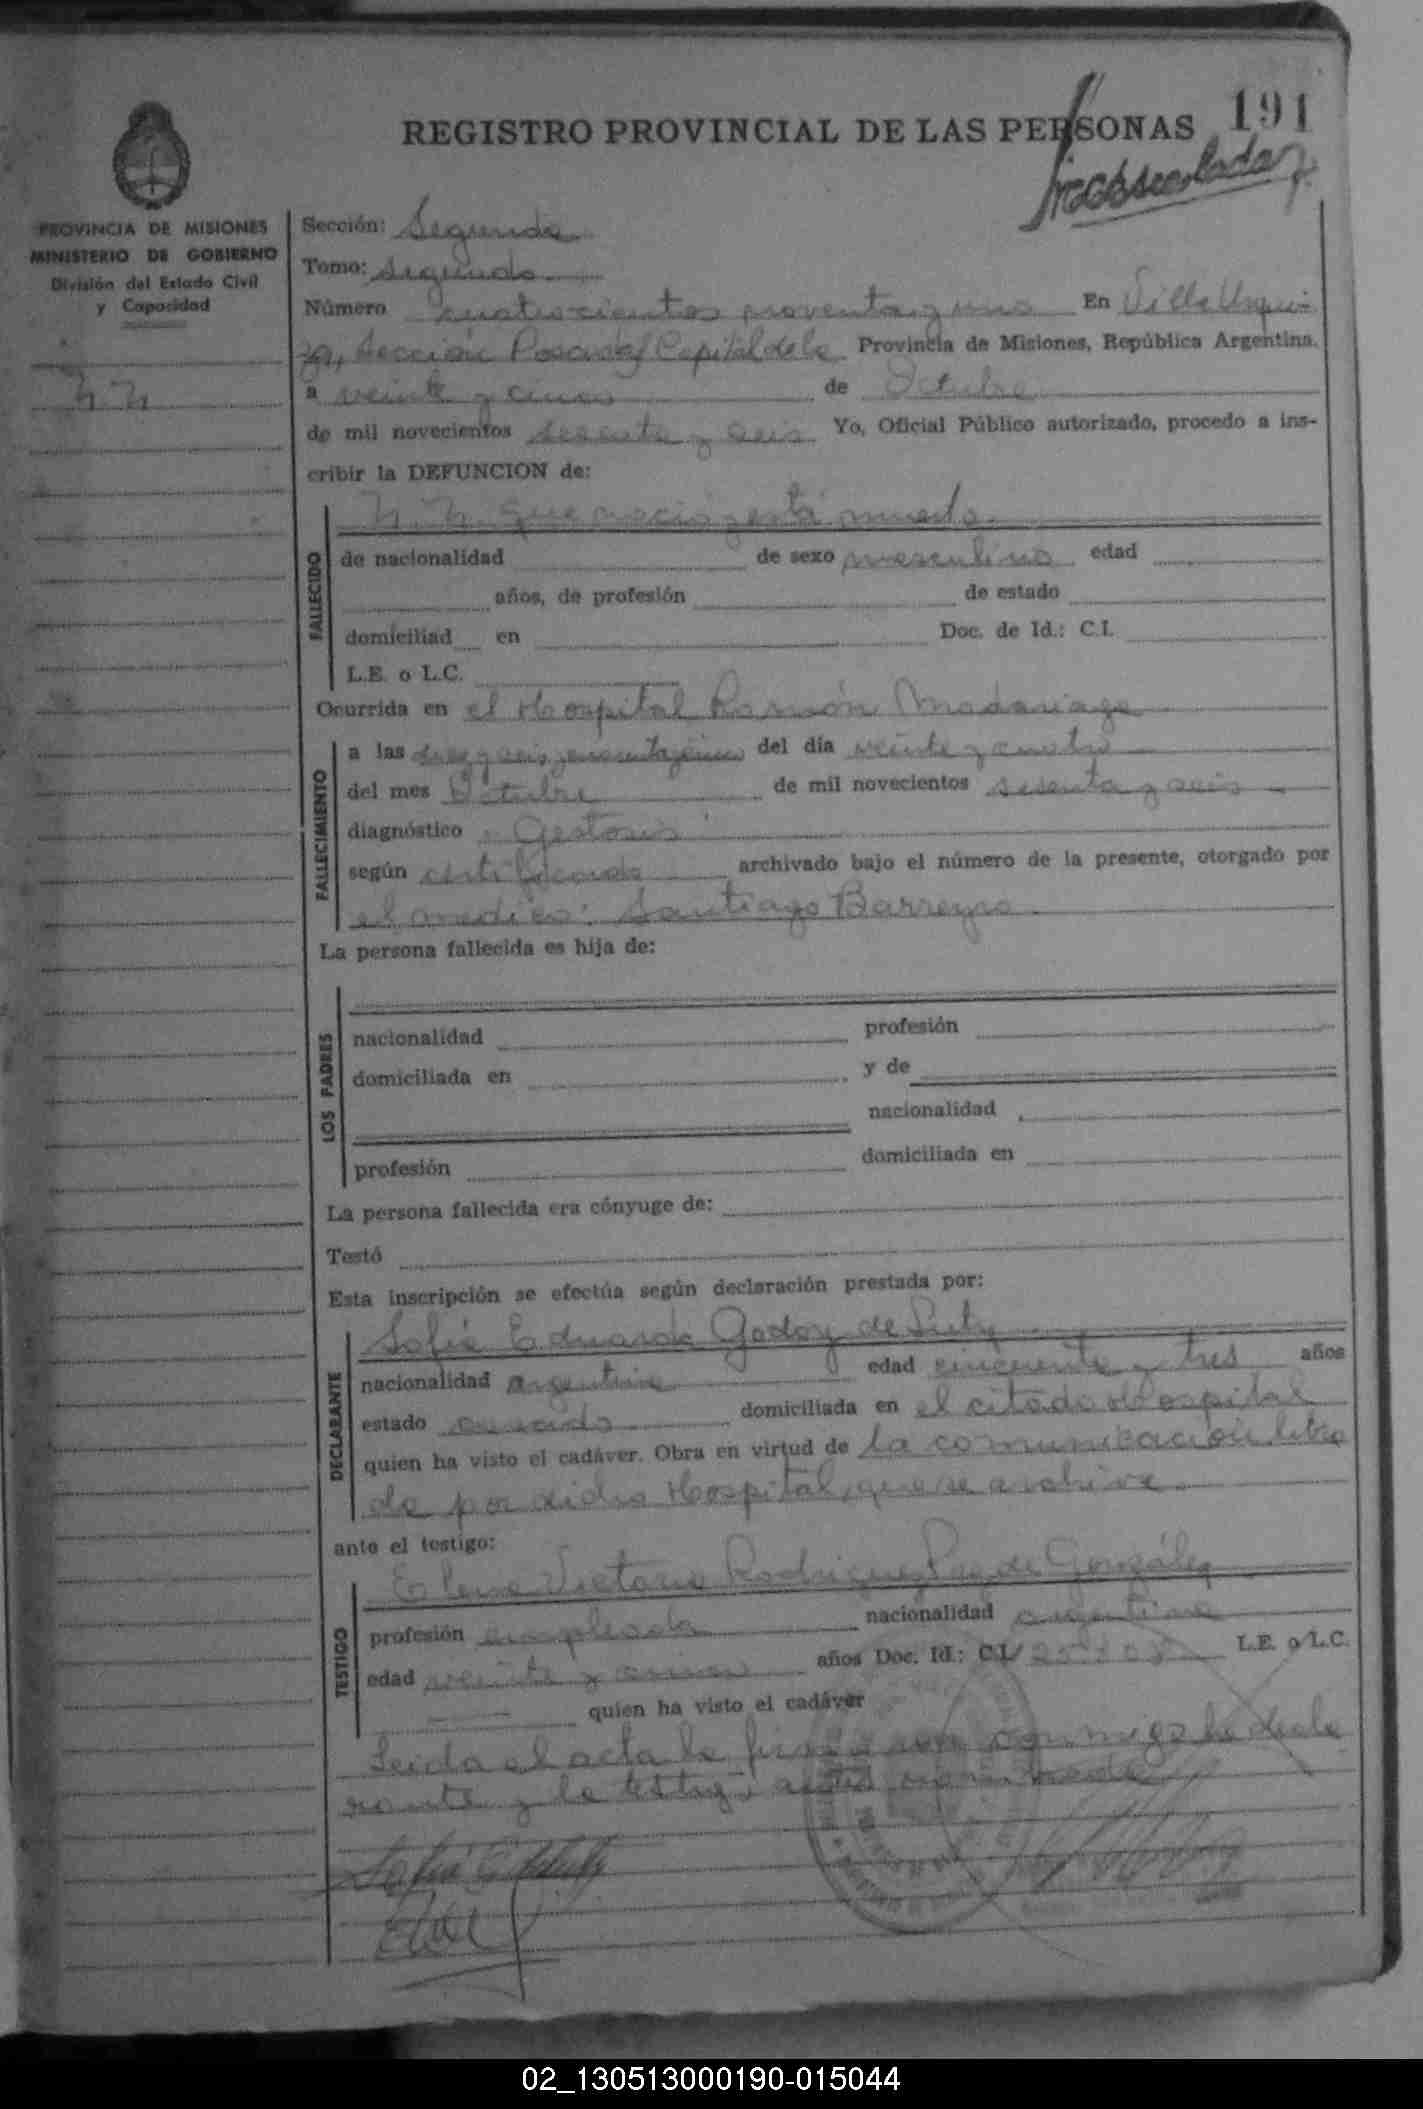 REGISTRO PROVINCIAL DE LAS PERSONAS 191
PROVINCIA DE MISIONES
MINISTERIO DE GOBIERNO
División del Estado Civil
y Capacidad
N. N.
Sección: Segunda
Tomo: Segundo
Número cuatrocientos noventa y uno En Villa Urqui-
za, Sección Posadas Capital de la Provincia de Misiones, República Argentina.
a veinte y cinco de Octubre
de mil novecientos sesenta y seis Yo, Oficial Público autorizado, procedo a ins-
cribir la DEFUNCION de:
N. N. que nació y está muerto
FALLECIDO
de nacionalidad de sexo masculino edad
años, de profesión de estado
domiciliad en Doc. de Id.: C.I.
L.E. o L.C.
Ocurrida en el Hospital Ramón Madariaga
FALLECIMIENTO
a las diez y seis y cuarenta y cinco del día veinte y cuatro
del mes Octubre de mil novecientos sesenta y seis
diagnóstico Gestosis
según certificado archivado bajo el número de la presente, otorgado por
el medico: Santiago Barreyro
La persona fallecida es hija de:
LOS PADRES
nacionalidad profesión
domiciliada en y de
nacionalidad
profesión domiciliada en
La persona fallecida era cónyuge de:
Testó
Esta inscripción se efectúa según declaración prestada por:
Sofia Eduarda Godoy de
DECLARANTE
nacionalidad argentina edad cincuenta y tres años
estado casada domiciliada en el citado Hospital
quien ha visto el cadáver. Obra en virtud de la comunicación libra
da por dicho Hospital, que se archiva
ante el testigo:
Elena Victoria Rodriguez Paz de González
TESTIGO
profesión empleada nacionalidad argentina
edad veinte y cinco años Doc. Id.: C.I. L.E. o L.C.
quien ha visto el cadáver
Leida el acta la firman conmigo la decla
rante y la testigo antes nombrada
02_130513000190-015044